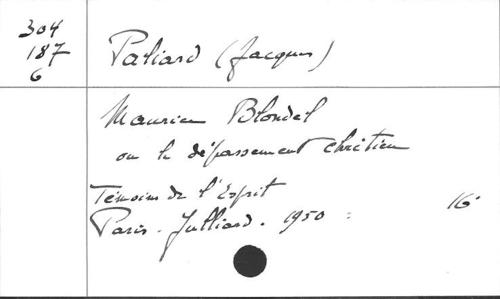 304
187
6
Paliard (Jacques)
Maurice Blondel
ou le dépassement chrétien
Témoins de l'Esprit
Paris. Julliard. 1950 = 16°